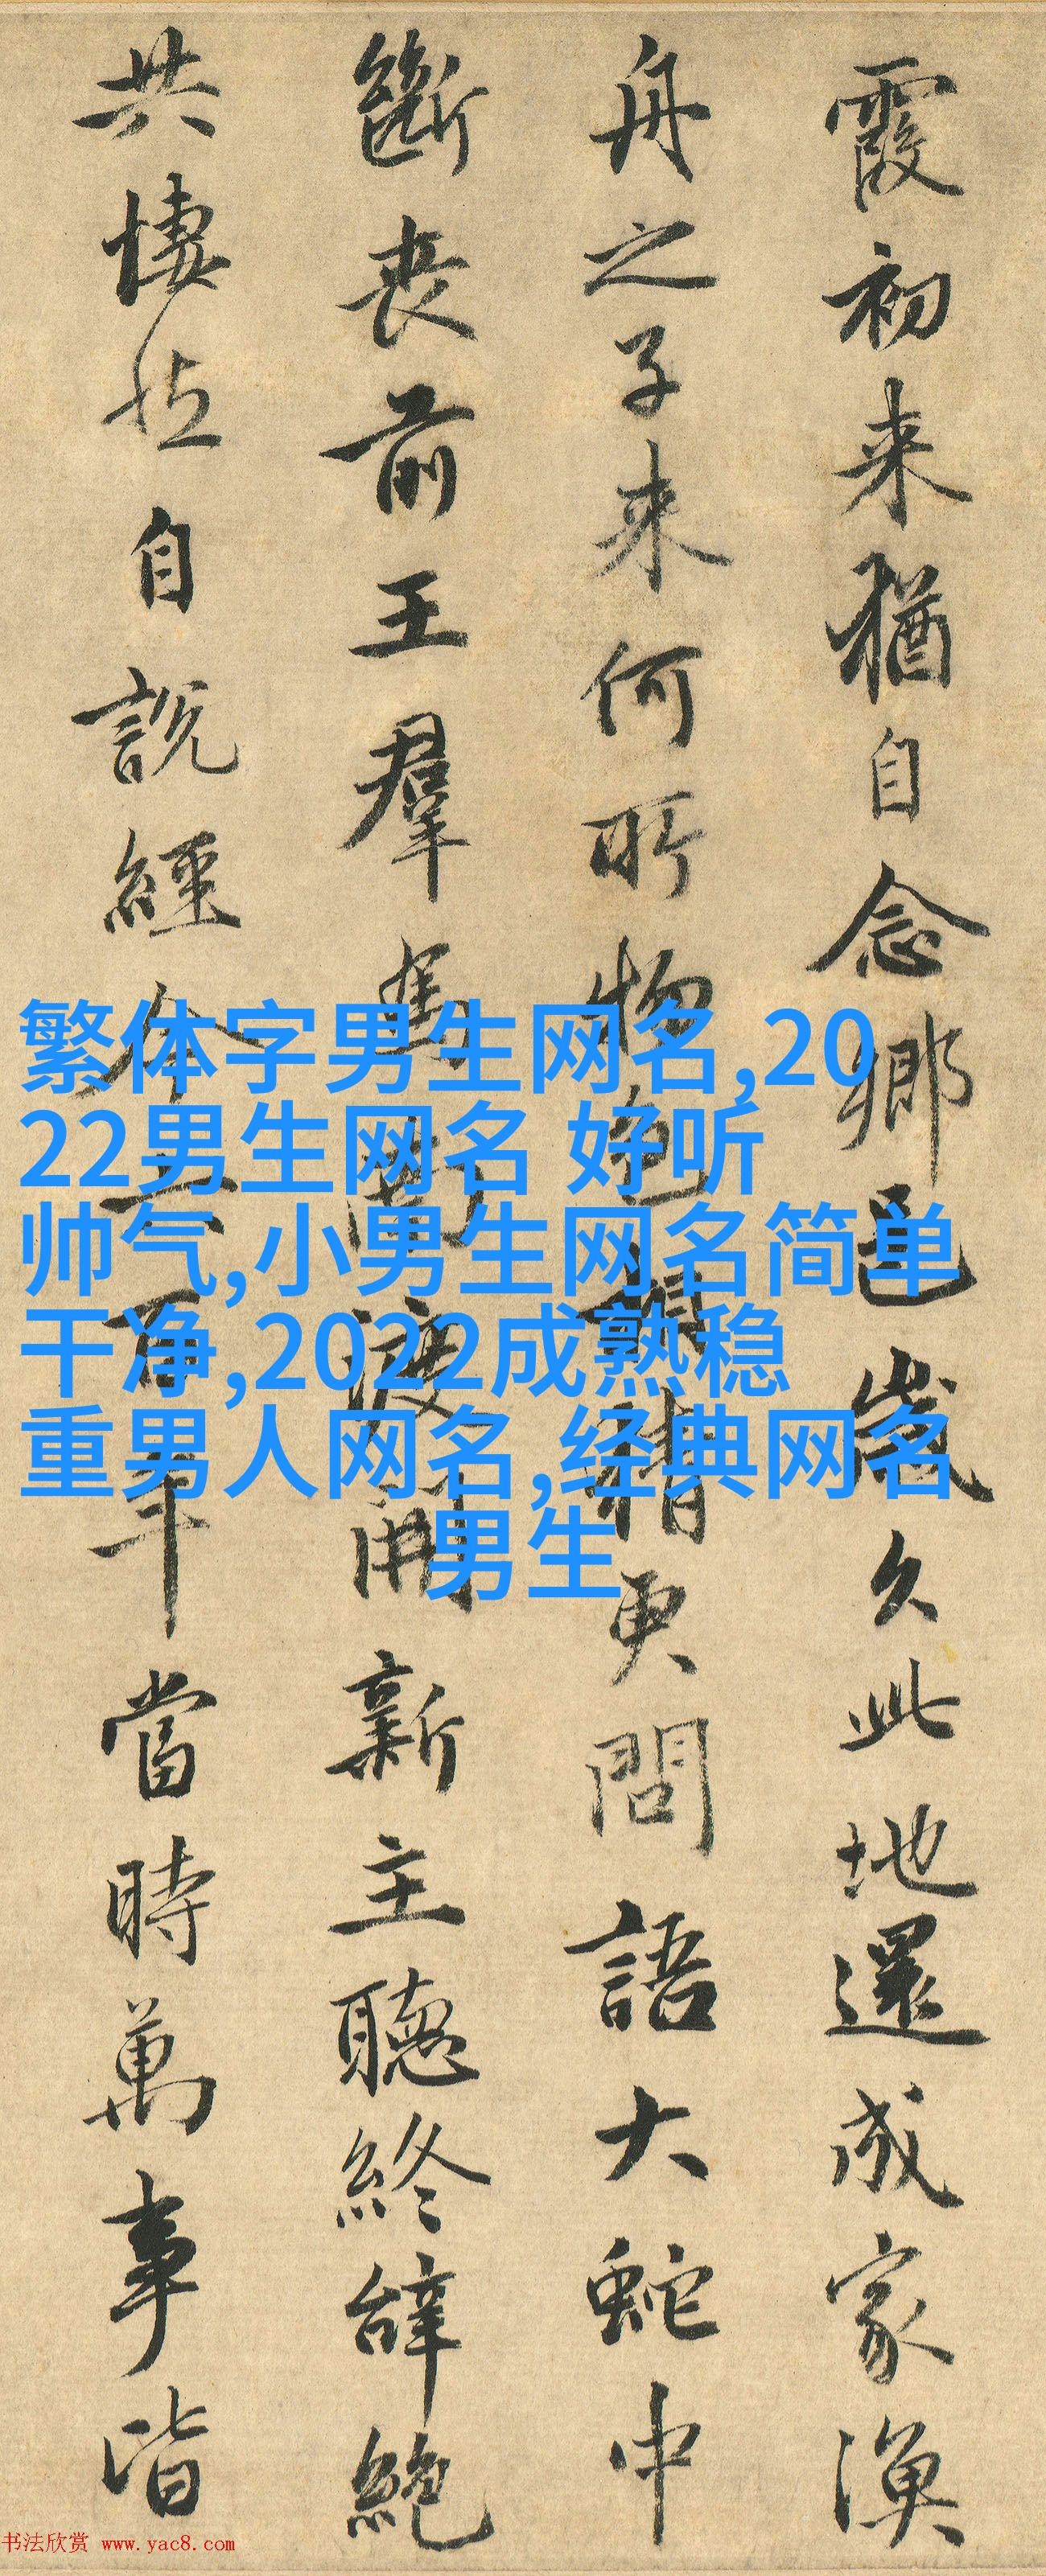 霞初来猶自念鄉邑歲久此地還成家漁
舟之子来何所物色相猜更問語大蛇中
斷喪前王羣馬南渡開新主聽終辭絶
共悽然自説經今六百年當時萬事皆
繁体字男生网名,20
22男生网名 好听
帅气,小男生网名简单
干净,2022成熟稳
重男人网名,经典网名
男生
书法欣赏 www.yac8.com